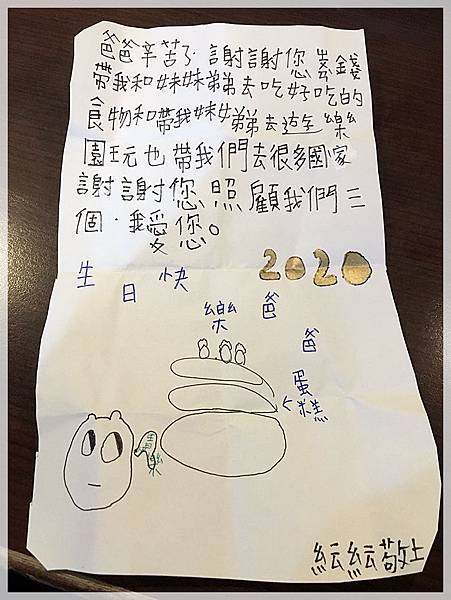 爸爸辛苦了謝謝您、賺錢
帶我和妹妹弟弟去吃好吃的
食物和帶我妹妹弟弟去遊樂
園玩也帶我們去很多國家
謝謝您照顧我們三
個,我愛您。
2020
生日快樂爸爸
蛋糕
音樂
紜紜敬上